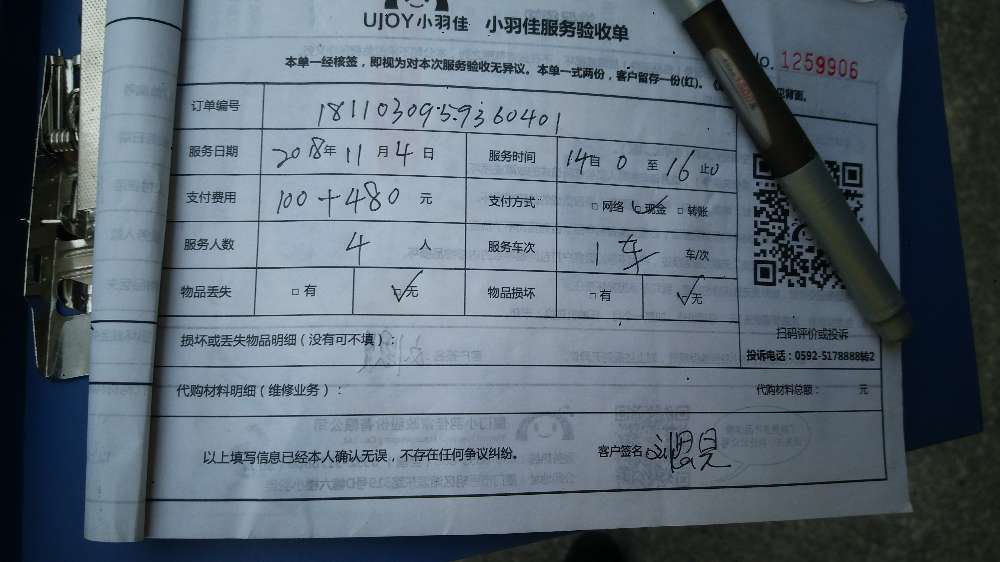 UJOY小羽佳 小羽佳服务验收单
No. 1259906
本单一经核签，即视为对本次服务验收无异议。本单一式两份，客户留存一份(红)。
背面。
订单编号 1811030959360401
服务日期 2018年11月4日 服务时间 14自0至16止0
支付费用 100+480元 支付方式 □网络 ☑现金 □转账
服务人数 4人 服务车次 1车 车/次
物品丢失 □有 ☑无 物品损坏 □有 ☑无
扫码评价或投诉
损坏或丢失物品明细（没有可不填）：
投诉电话：0592-5178888转2
代购材料明细（维修业务）： 代购材料总额： 元
以上填写信息已经本人确认无误，不存在任何争议纠纷。 客户签名